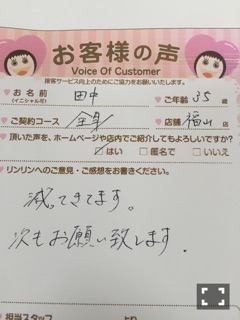 お客様の声
Voice Of Customer
接客サービス向上のためにご協力をお願いいたします。
お名前 田中 ご年齢 35 歳
(イニシャル可)
ご契約コース 全身 店舗 福山 店
頂いた声を、ホームページや店内でご紹介してもよろしいですか?
はい 匿名で いいえ
リンリンへのご意見・ご感想をお書きください。
減ってきてます。
次もお願い致します.
担当スタッフ より